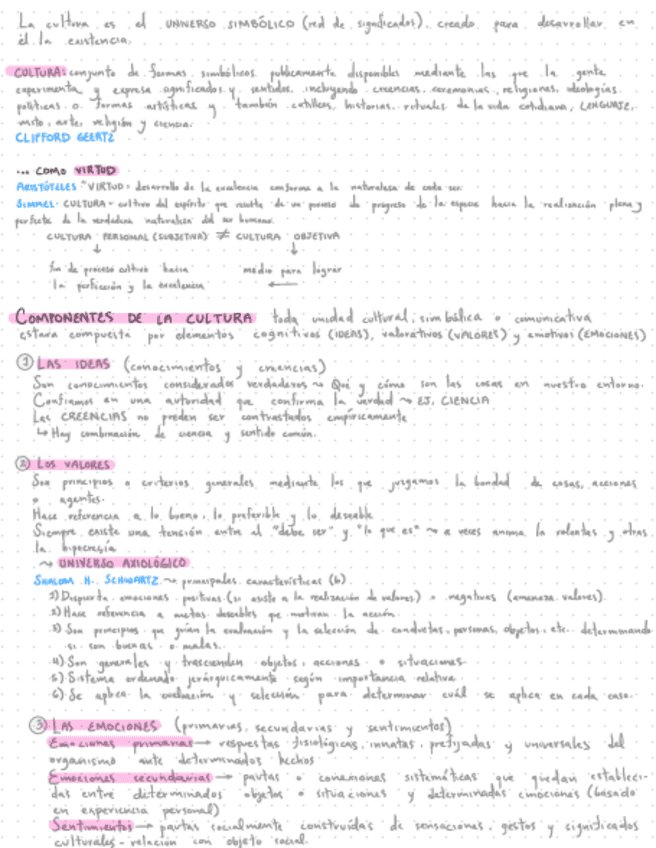 La cultura es el UNIVERSO SIMBÓLICO (red de significados), creado para desarrollar en
él la existencia.
CULTURA: conjunto de formas simbólicas publicamente disponibles mediante las que la gente
experimenta y expresa significados y sentidos, incluyendo creencias, ceremonias, religiones, ideologías
políticas o formas artísticas y también cotilleos, historias, rituales de la vida cotidiana, LENGUAJE,
mito, arte, religión y ciencia.
CLIFFORD GEERTZ
... COMO VIRTUD
ARISTÓTELES "VIRTUD: desarrollo de la excelencia conforme a la naturaleza de cada ser.
SIMMEL: CULTURA - cultivo del espíritu que resulta de un proceso de progreso de la especie hacia la realización plena y
perfecta de la verdadera naturaleza del ser humano.
CULTURA PERSONAL (SUBJETIVA) ≠ CULTURA OBJETIVA
↓ ↓
fin de proceso cultivo hacia medio para lograr
la perfección y la excelencia ←
COMPONENTES DE LA CULTURA toda unidad cultural, simbólica o comunicativa
estara compuesta por elementos cognitivos (IDEAS), valorativos (VALORES) y emotivos (EMOCIONES)
① LAS IDEAS (conocimientos y creencias)
Son conocimientos considerados verdaderos ~ Qué y cómo son las cosas en nuestro entorno.
Confiamos en una autoridad que confirma la verdad ~ EJ. CIENCIA
Las CREENCIAS no pueden ser contrastados empíricamente
↳ Hay combinación de ciencia y sentido común.
② LOS VALORES
Son principios o criterios generales mediante los que juzgamos la bondad de cosas, acciones
o agentes.
Hace referencia a lo bueno, lo preferible y lo deseable
Siempre existe una tensión entre el "debe ser" y "lo que es" ~ a veces anima la y otras
la hipocresía
~ UNIVERSO AXIOLÓGICO
SHALOM H. SCHWARTZ ~ principales características (6)
1) Despierta emociones positivas (si asiste a la realización de valores) o negativas (amenaza valores).
2) Hace referencia a metas deseables que motivan la acción.
3) Son principios que guían la evaluación y la selección de conductas, personas, objetos, etc. determinando
si son buenas o malas.
4) Son generales y trascienden objetos, acciones o situaciones
5) Sistema ordenado jerárquicamente según importancia relativa.
6) Se aplica la evaluación y selección para determinar cuál se aplica en cada caso.
③ LAS EMOCIONES (primarias, secundarias y sentimientos)
Emociones primarias → respuestas fisiológicas, innatas, prefijadas y universales del
organismo ante determinados hechos
Emociones secundarias → pautas o conexiones sistemáticas que quedan estableci-
das entre determinados objetos o situaciones y determinadas emociones (basado
en experiencia personal)
Sentimientos → pautas socialmente construidas de sensaciones, gestos y significados
culturales - relación con objeto social.